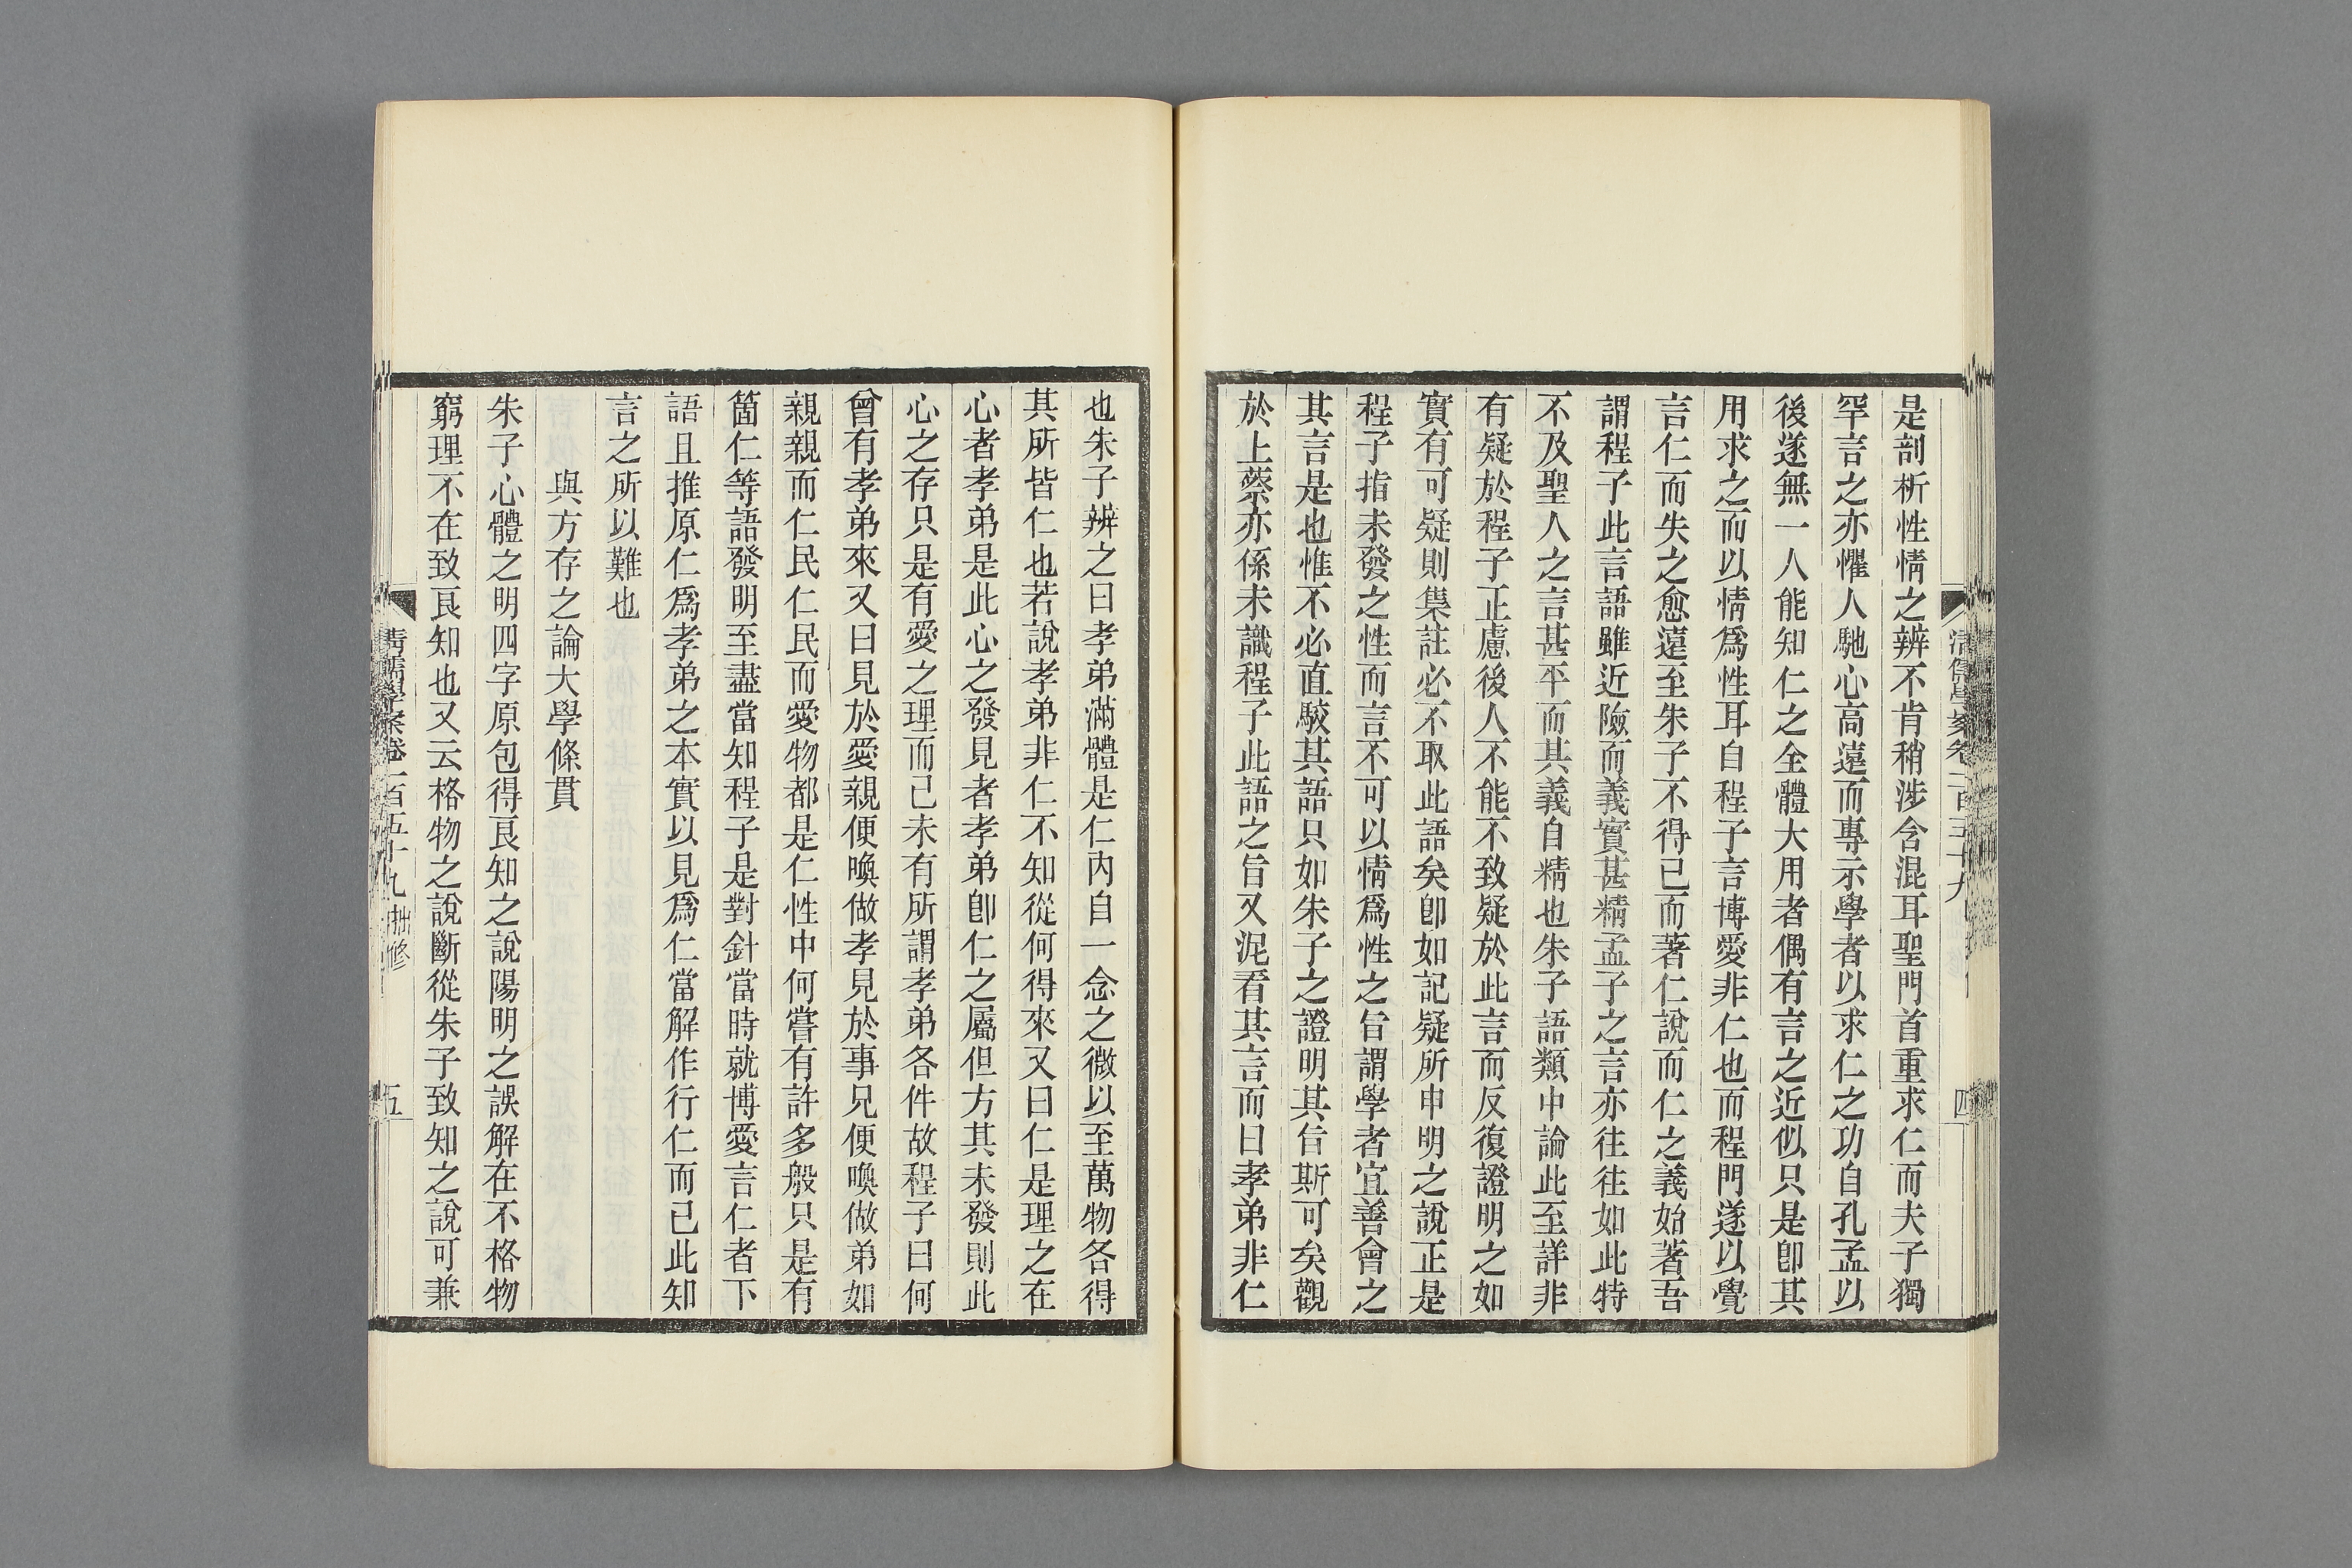 是剖析性情之辨不肯稍涉含混耳聖門首重求仁而夫子獨
罕言之亦懼人馳心高遠而專示學者以求仁之功自孔孟以
後遂無一人能知仁之全體大用者偶有言之近似只是卽其
用求之而以情爲性耳自程子言博愛非仁也而程門遂以覺
言仁而失之愈遠至朱子不得已而著仁說而仁之義始著吾
謂程子此言語雖近險而義實甚精孟子之言亦往往如此特
不及聖人之言甚平而其義自精也朱子語類中論此至詳非
有疑於程子正慮後人不能不致疑於此言而反復證明之如
實有可疑則集註必不取此語矣卽如記疑所申明之說正是
程子指未發之性而言不可以情爲性之旨謂學者宜善會之
其言是也惟不必直駮其語只如朱子之證明其旨斯可矣觀
於上蔡亦係未識程子此語之旨又泥看其言而曰孝弟非仁
清儒學案卷一百五十九
四
也朱子辨之曰孝弟滿體是仁內自一念之微以至萬物各得
其所皆仁也若說孝弟非仁不知從何得來又曰仁是理之在
心者孝弟是此心之發見者孝弟卽仁之屬但方其未發則此
心之存只是有愛之理而已未有所謂孝弟各件故程子曰何
曾有孝弟來又曰見於愛親便喚做孝見於事兄便喚做弟如
親親而仁民仁民而愛物都是仁性中何嘗有許多般只是有
箇仁等語發明至盡當知程子是對針當時就博愛言仁者下
語且推原仁爲孝弟之本實以見爲仁當解作行仁而已此知
言之所以難也
與方存之論大學條貫
朱子心體之明四字原包得良知之說陽明之誤解在不格物
窮理不在致良知也又云格物之說斷從朱子致知之說可兼
清儒學案卷一百五十九 拙修
五